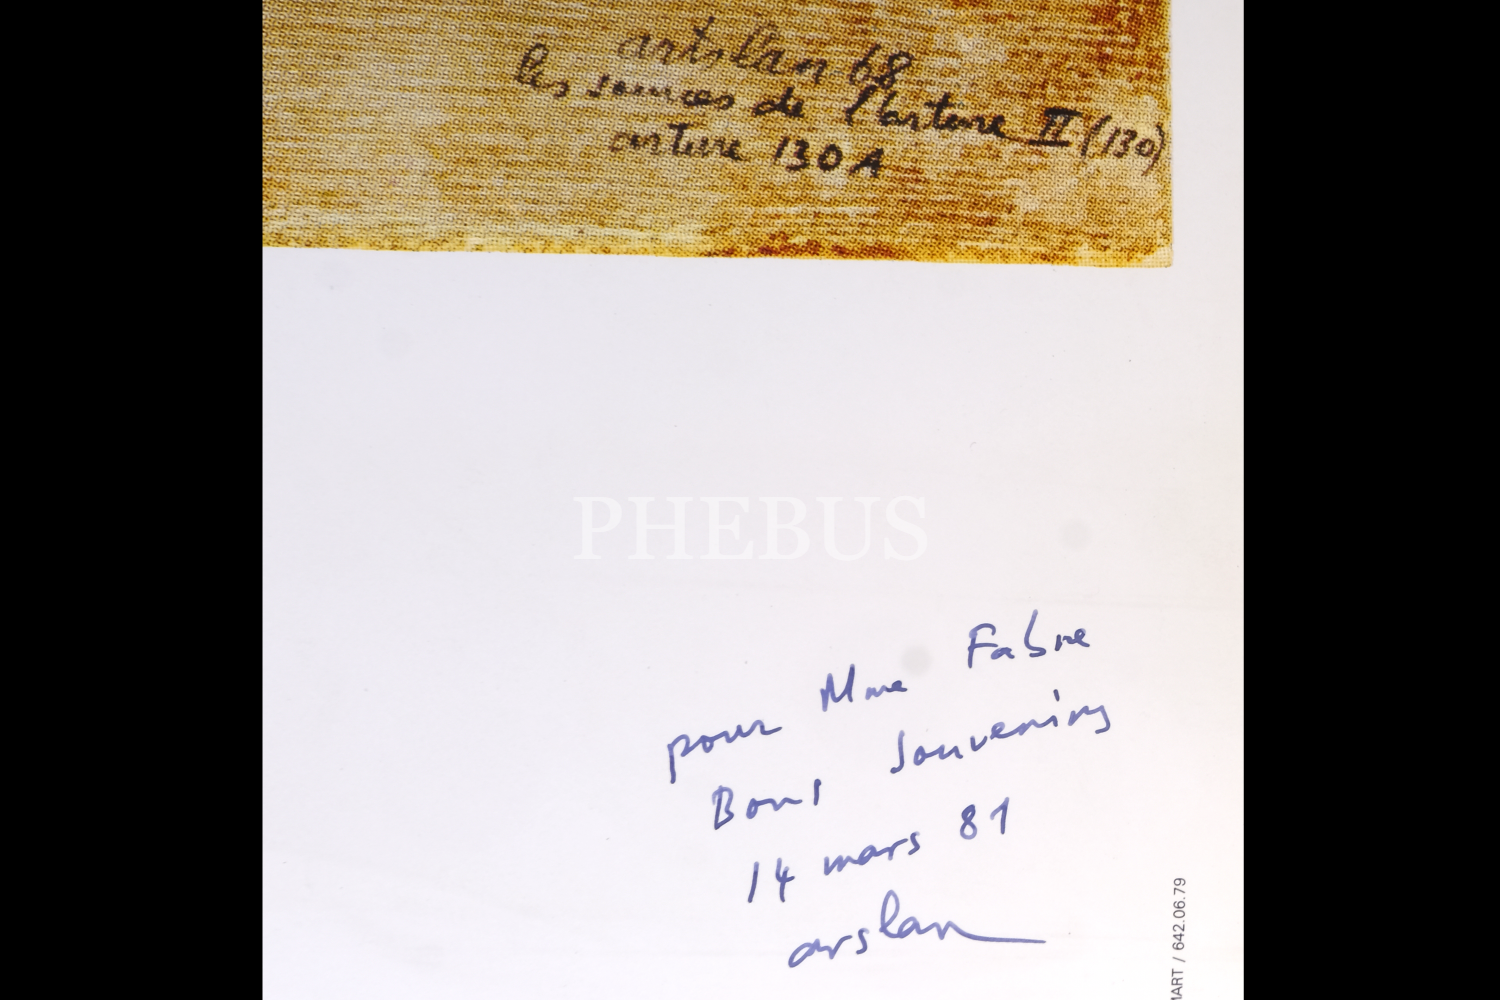 artslan 68
les sources de l'arture II (130)
arture 130 A
PHEBUS
pour Mme Fabre
Bons Souvenirs
14 mars 81
arslan
MART / 642.06.79